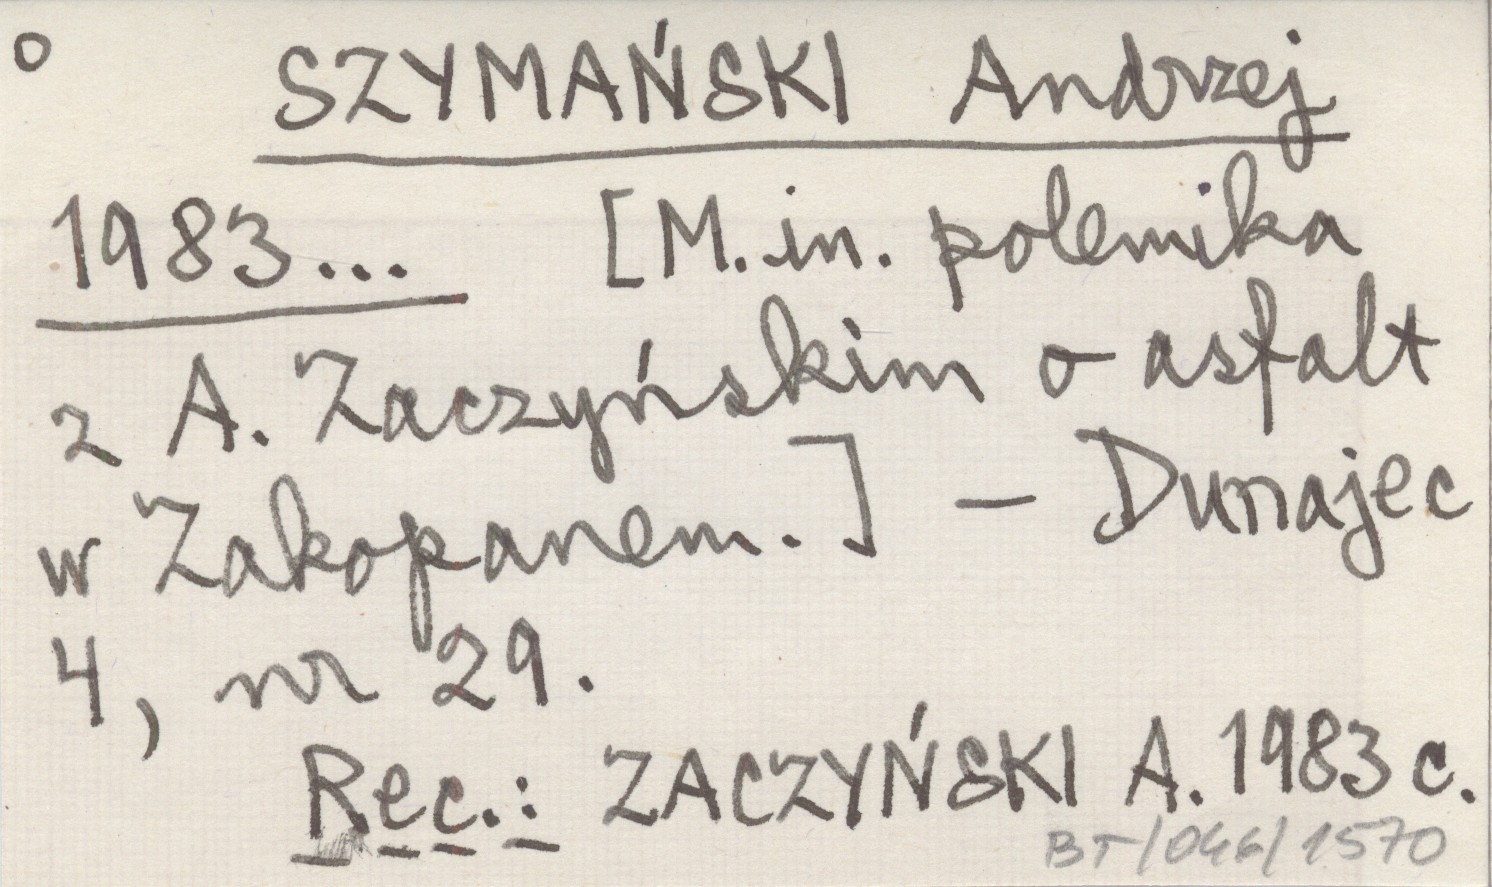 o SZYMAŃSKI Andrzej
1983... [M. in. polemika
z A. Zaczyńskim o asfalt
w Zakopanem.] — Dunajec
4, nr 29.
Rec.: ZACZYŃSKI A. 1983 c.
BT/046/1570